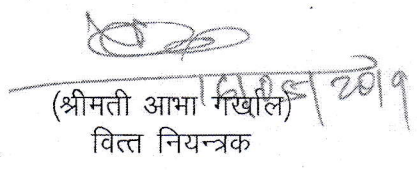 (श्रीमती आभा गर्खाल)
वित्त नियन्त्रक